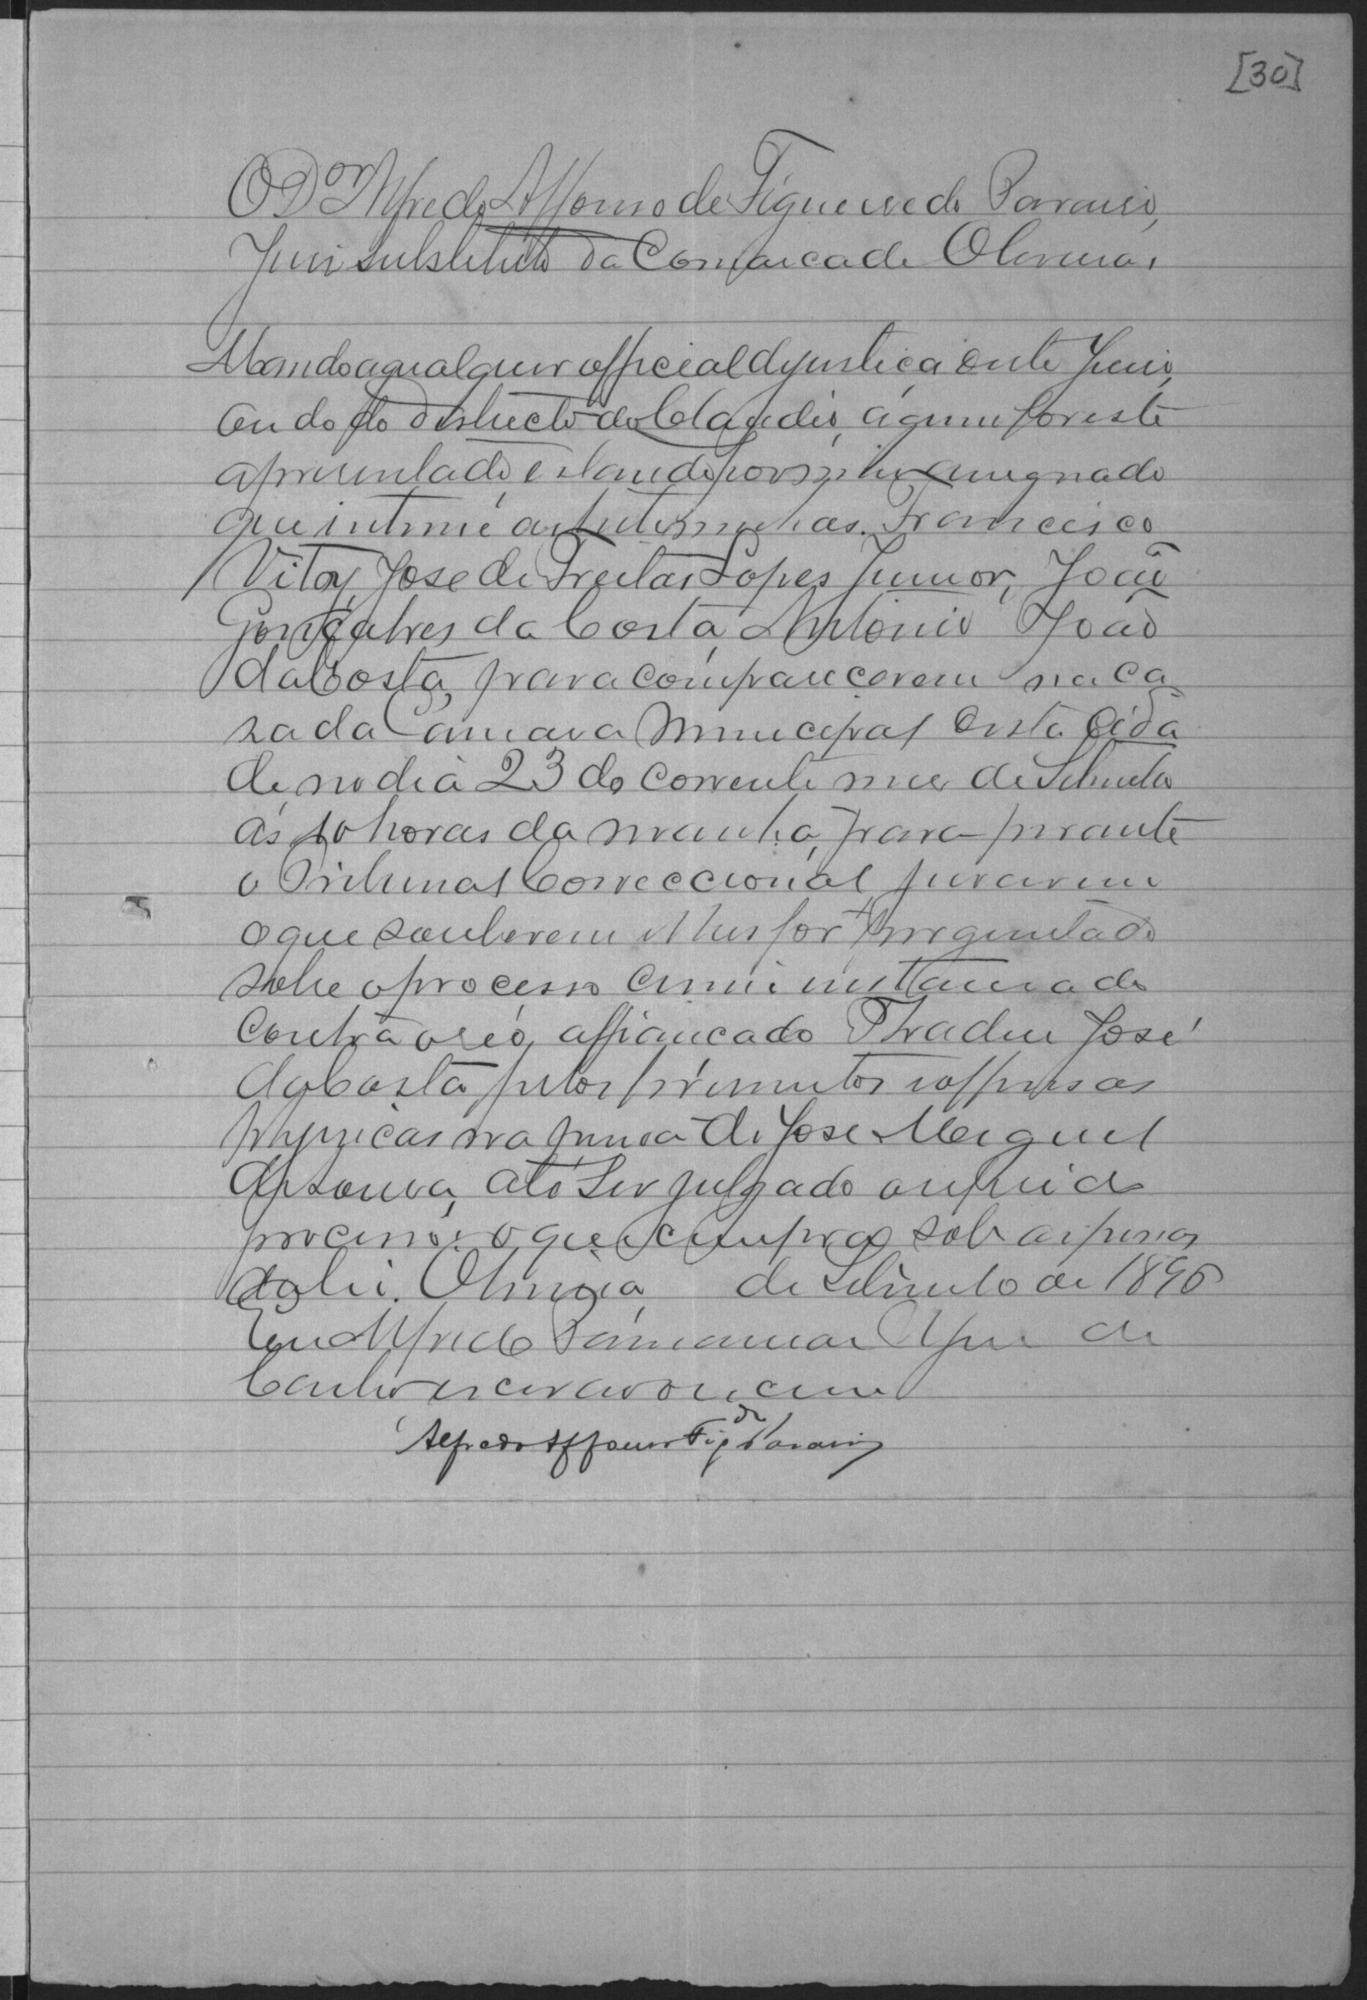 [30]
O Dor Alfredo Affonso de Figueiredo Paraiso,
Juis substituto da Comarca de Oliveira,
Mando a qualquer official de justiça deste Juiso,
ou do do districto do Claudio, á quem for este
apresentado estando por mim assignado
que intime as testemunhas. Francisco
Vital, Jose de Freitas Lopes Junior, João
Gonçalves da Costa, Antonio João
da Costa, para comparecerem na ca
sa da Camara Municipal desta Cida
de no dia 23 do corrente mes de Setembro
ás 10 horas da manhã, para perante
o Tribunal Correccional jurarem
o que souberem e lhes for perguntado
sobre o processo crime instaurado
contra o reo, affiançado Thadeu José
da Costa pelos ferimentos e offensas
physicas na pessoa de Jose Miguel
de Sousa, até ser julgado o referido
processo: o que cumpra sob as penas
da lei. Oliveira de Setembro de 1896
Eu Alfredo de
Castro escrivão o escrevi
Alfredo Affonso Figdo Paraiso